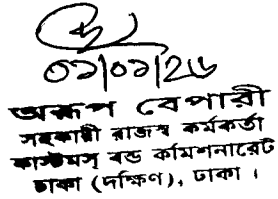 ০১/০১/২৬
অরূপ বেপারী
সহকারী রাজস্ব কর্মকর্তা
কাস্টমস্ বন্ড কমিশনারেট
ঢাকা (দক্ষিণ), ঢাকা ।